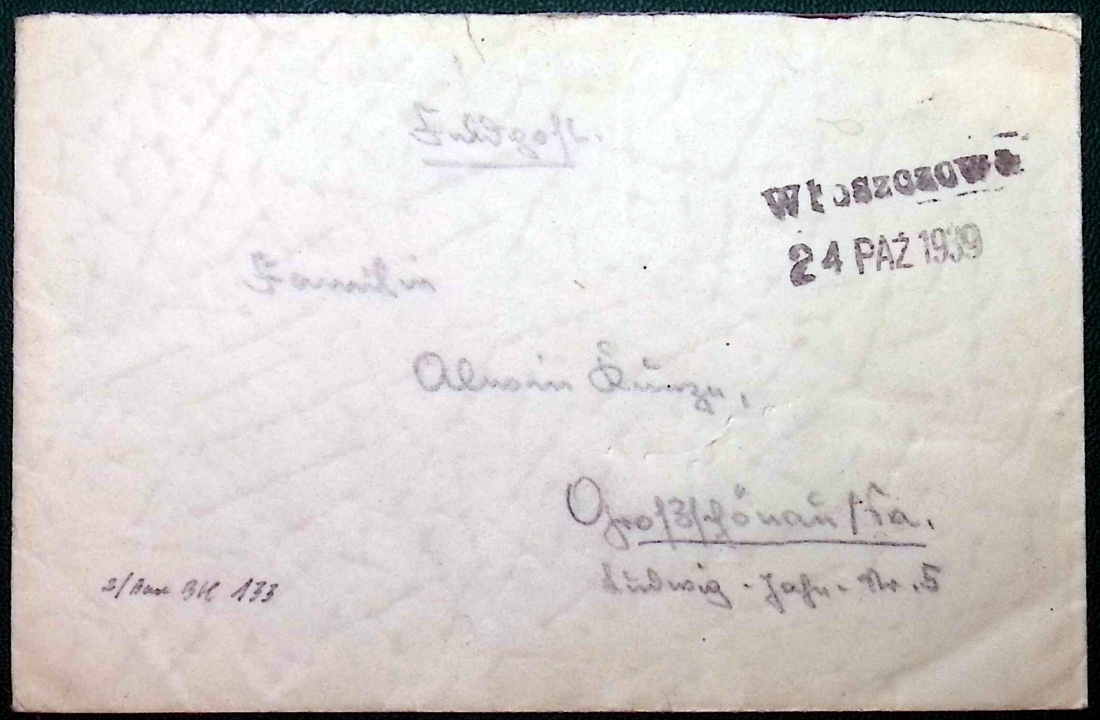 Feldpost.
Włoszczowa
24 PAŹ 1939
Familie
Alwin Kunze,
Großschönau/Sa.
Ludwig-Jahn-Str. 5
133